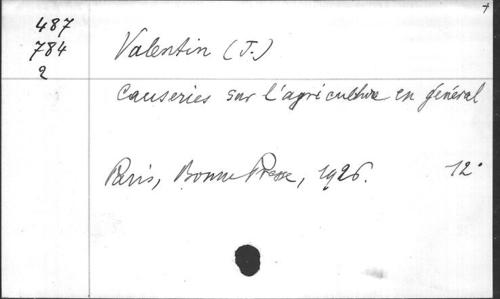 487
784
2
Valentin (J.)
Causeries sur l'agriculture en général
Paris, Bonne Presse, 1926. 12°